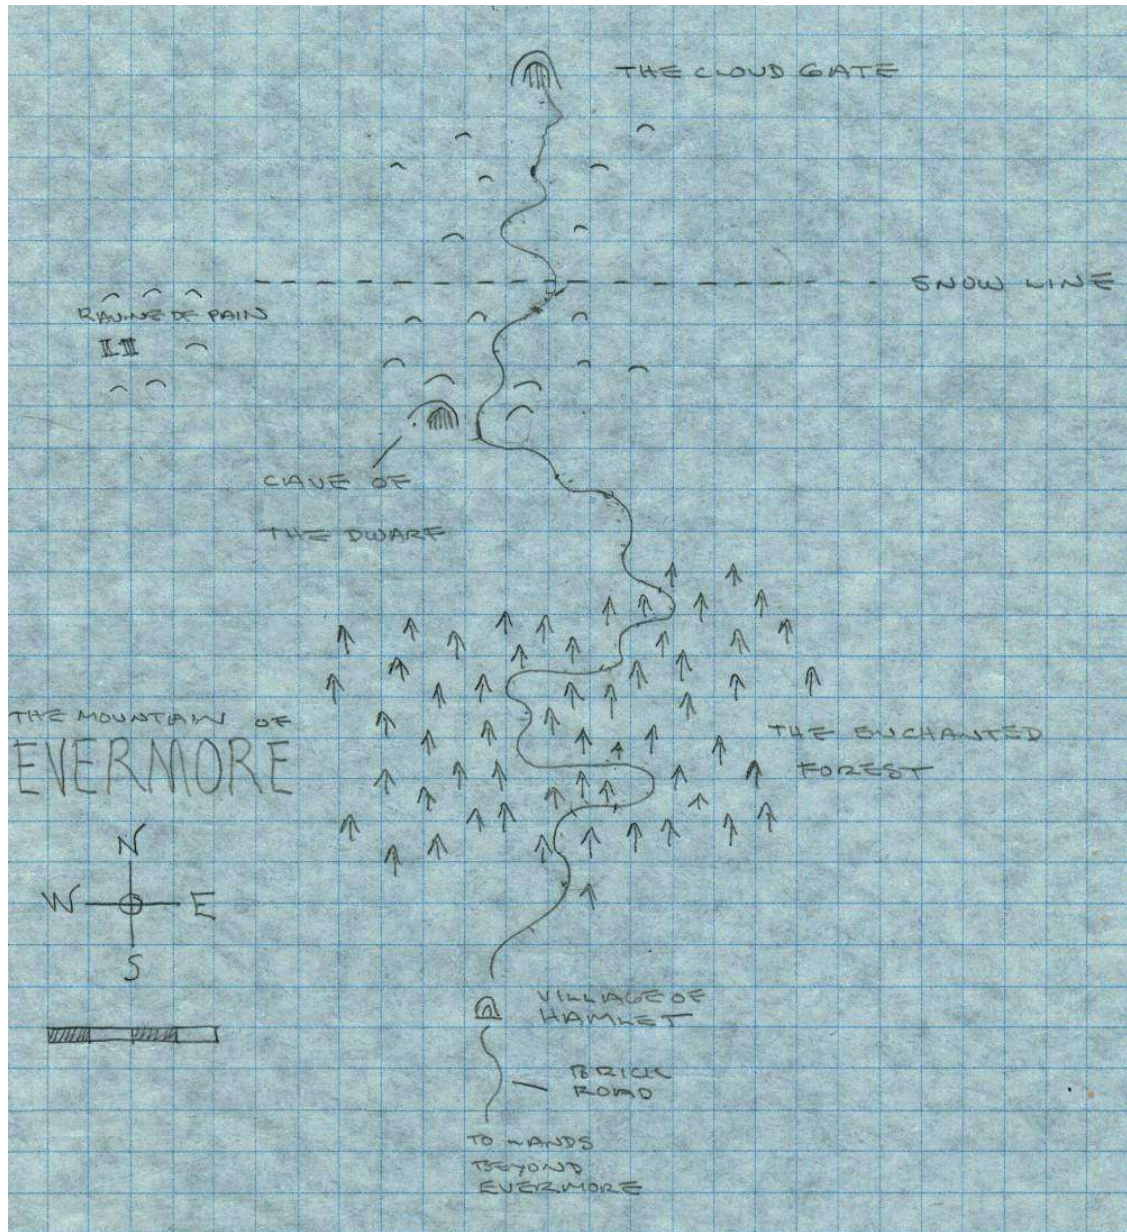 THE CLOUD GATE
SNOW LINE
RAVINE OF PAIN
CAVE OF
THE DWARF
THE MOUNTAIN OF
EVERMORE
THE ENCHANTED
FOREST
N
W E
S
VILLAGE OF
HAMLET
BRICK
ROAD
TO LANDS
BEYOND
EVERMORE